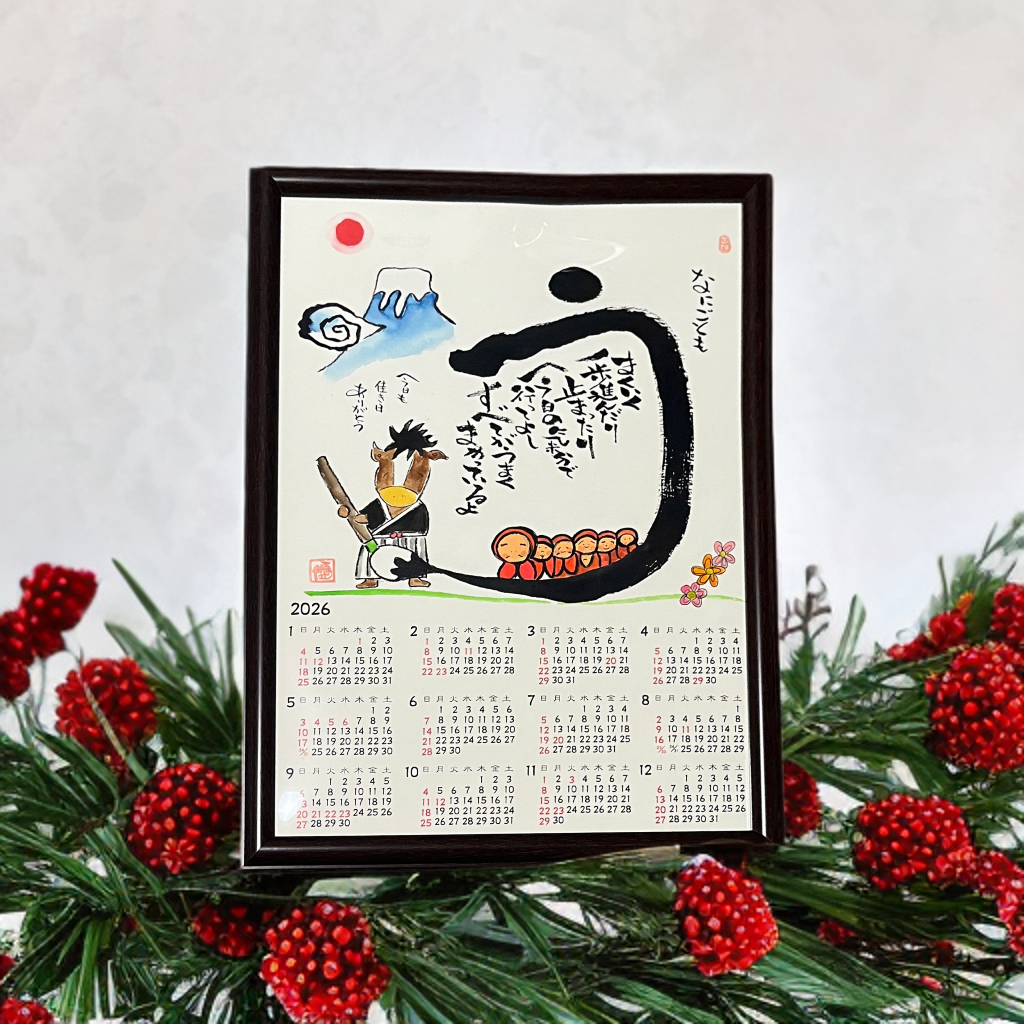 なにごとも
う
まくいく
一歩進んだり
止まったり
今日の気分で
行ってよし
すべてがうまく
まわっているよ
今日も
佳き日
ありがとう
2026
1 日 月 火 水 木 金 土
1 2 3
4 5 6 7 8 9 10
11 12 13 14 15 16 17
18 19 20 21 22 23 24
25 26 27 28 29 30 31
2 日 月 火 水 木 金 土
1 2 3 4 5 6 7
8 9 10 11 12 13 14
15 16 17 18 19 20 21
22 23 24 25 26 27 28
3 日 月 火 水 木 金 土
1 2 3 4 5 6 7
8 9 10 11 12 13 14
15 16 17 18 19 20 21
22 23 24 25 26 27 28
29 30 31
4 日 月 火 水 木 金 土
1 2 3 4
5 6 7 8 9 10 11
12 13 14 15 16 17 18
19 20 21 22 23 24 25
26 27 28 29 30
5 日 月 火 水 木 金 土
1 2
3 4 5 6 7 8 9
10 11 12 13 14 15 16
17 18 19 20 21 22 23
24/31 25 26 27 28 29 30
6 日 月 火 水 木 金 土
1 2 3 4 5 6
7 8 9 10 11 12 13
14 15 16 17 18 19 20
21 22 23 24 25 26 27
28 29 30
7 日 月 火 水 木 金 土
1 2 3 4
5 6 7 8 9 10 11
12 13 14 15 16 17 18
19 20 21 22 23 24 25
26 27 28 29 30 31
8 日 月 火 水 木 金 土
1
2 3 4 5 6 7 8
9 10 11 12 13 14 15
16 17 18 19 20 21 22
23/30 24/31 25 26 27 28 29
9 日 月 火 水 木 金 土
1 2 3 4 5
6 7 8 9 10 11 12
13 14 15 16 17 18 19
20 21 22 23 24 25 26
27 28 29 30
10 日 月 火 水 木 金 土
1 2 3
4 5 6 7 8 9 10
11 12 13 14 15 16 17
18 19 20 21 22 23 24
25 26 27 28 29 30 31
11 日 月 火 水 木 金 土
1 2 3 4 5 6 7
8 9 10 11 12 13 14
15 16 17 18 19 20 21
22 23 24 25 26 27 28
29 30
12 日 月 火 水 木 金 土
1 2 3 4 5
6 7 8 9 10 11 12
13 14 15 16 17 18 19
20 21 22 23 24 25 26
27 28 29 30 31